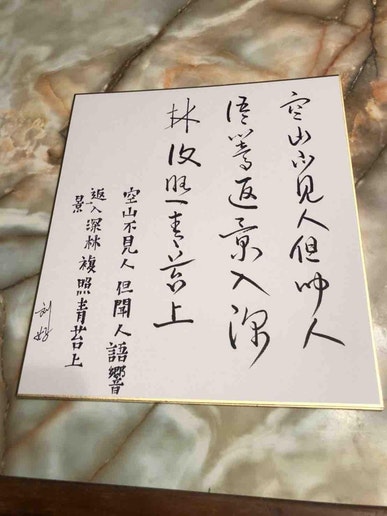 空山不见人但闻人
语响返景入深
林复照青苔上
空山不見人 但聞人語響
返入深林 複照青苔上
景
刘